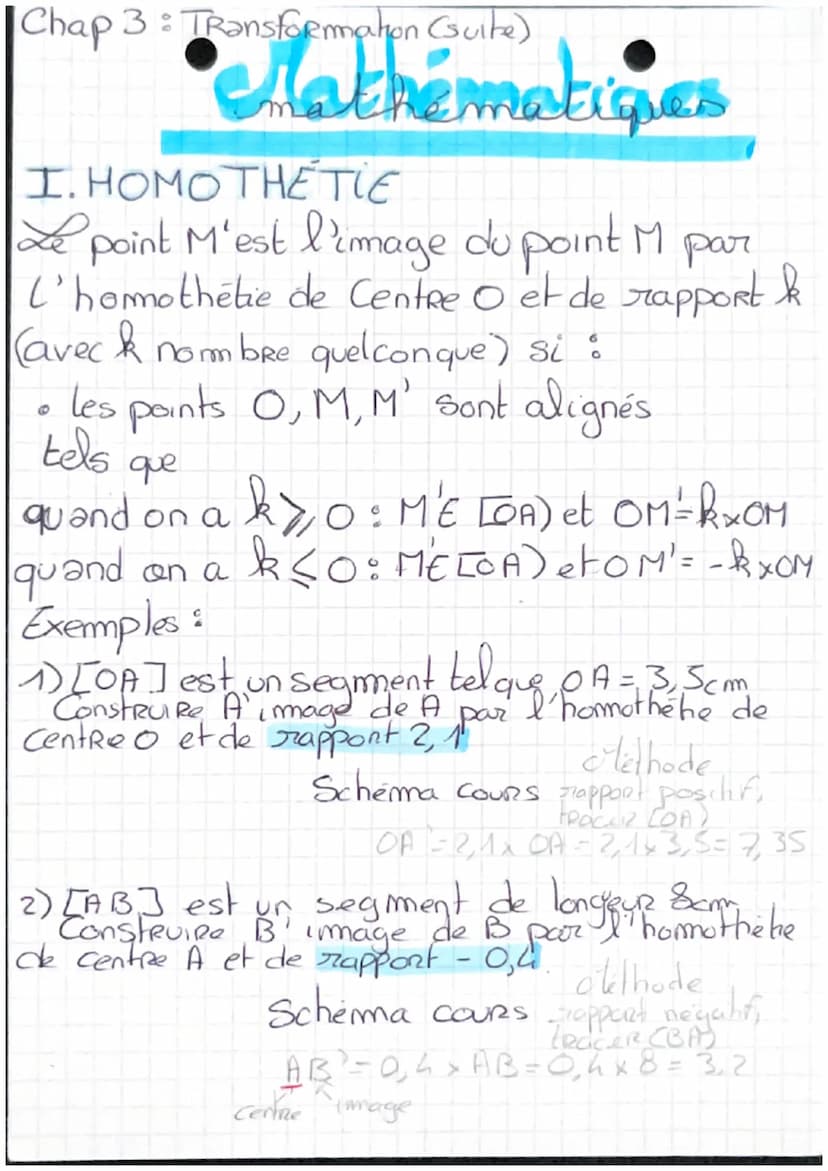 Chap 3 : Transformation (suite)
Mathématiques
mathématiques
I. HOMOTHÉTIE
Le point M' est l'image du point M par
l'homothétie de Centre O et de rapport k
(avec k nombre quelconque) si :
• les points O, M, M' sont alignés
tels que
quand on a k ⩾ 0 : M'∈ [OA) et OM'= k×OM
quand on a k ⩽ 0 : M'∈ [OA) et OM'= -k×OM
Exemples :
1) [OA] est un segment tel que OA = 3,5cm
Construire A' image de A par l'homothétie de
centre O et de rapport 2,1
Méthode
Schéma cours rapport positif,
tracer [OA)
OA'= 2,1 x OA = 2,1 x 3,5 = 7,35
2) [AB] est un segment de longeur 8cm
Construire B' image de B par l'homothétie
de centre A et de rapport - 0,4
Méthode
Schéma cours rapport négatif,
tracer (BA)
AB'= 0,4 x AB = 0,4 x 8 = 3.2
centre image